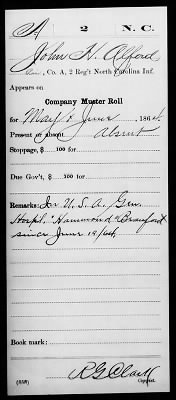 A 2 N. C.
John H. Alford
, Co. A, 2 Reg't North Carolina Inf.
Appears on
Company Muster Roll
for May & June, 1864.
Present or absent Absent
Stoppage, $ 100 for
Due Gov't, $ 100 for
Remarks: In U. S. A. Gen.
Hospl. "Hammond"
since June 19/64.
Book mark:
(858) R G Clark
Copyist.